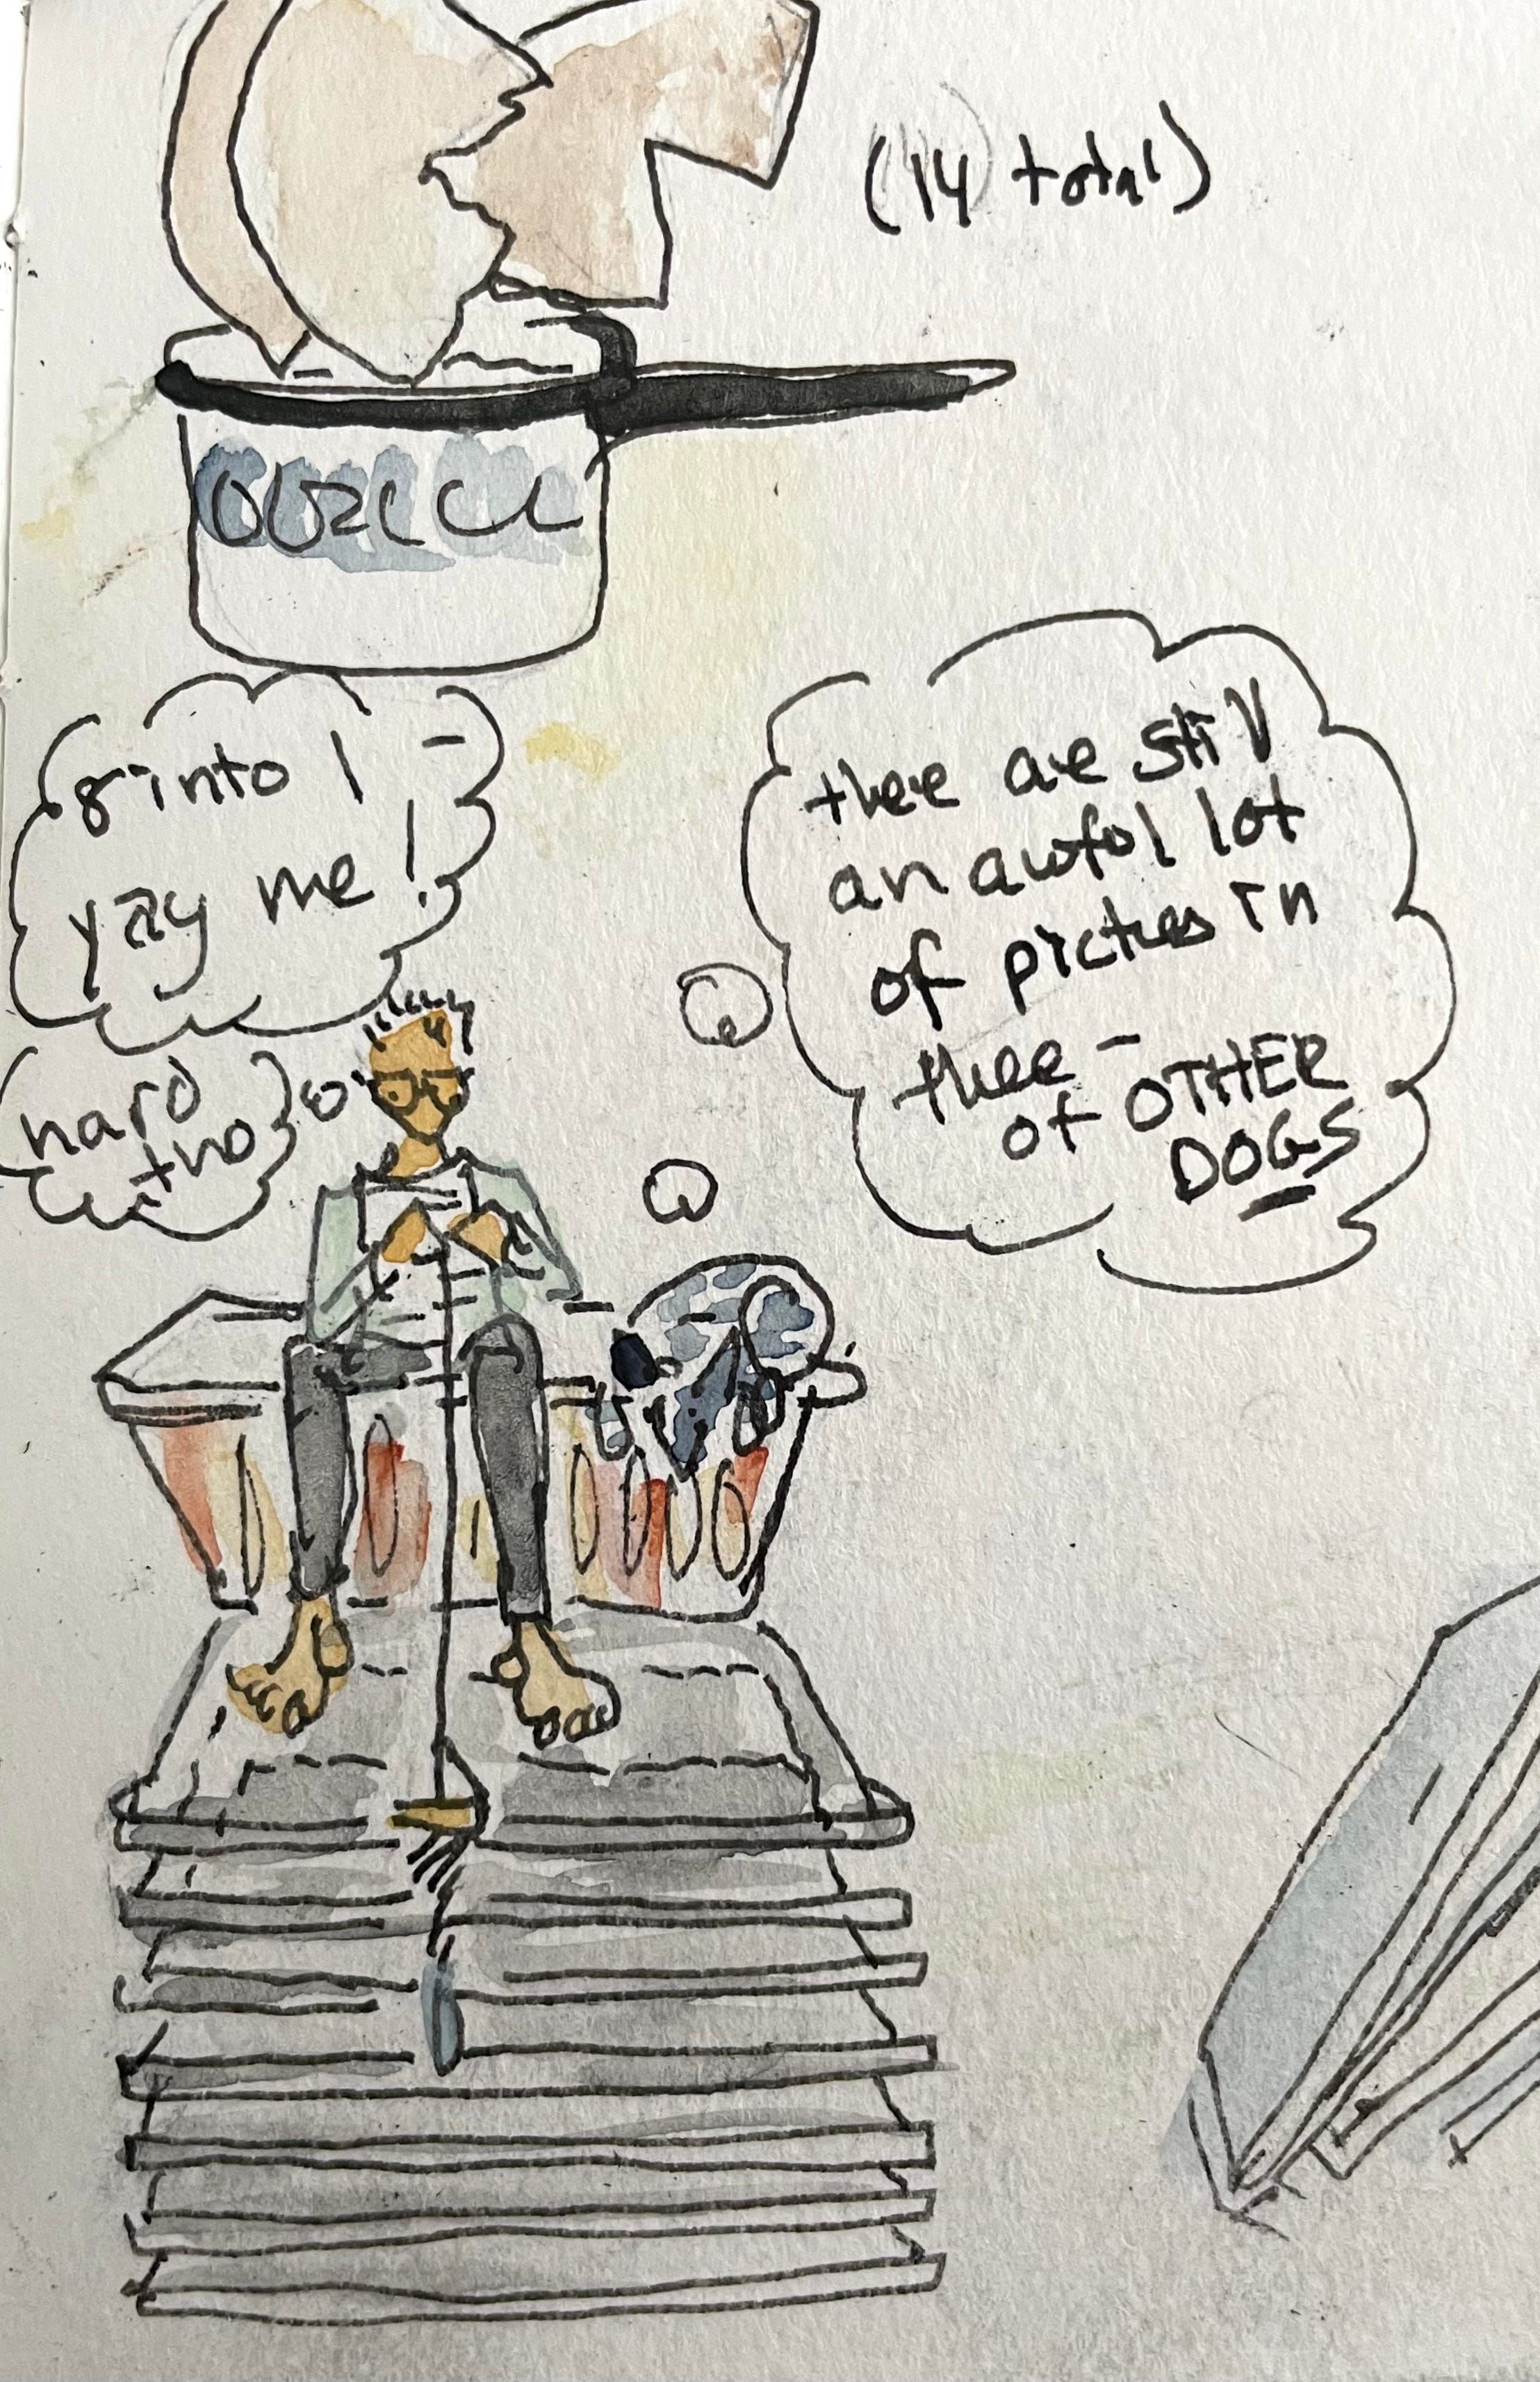 (14 total)
8 into 1 -
yay me!
hard
tho
there are still
an awful lot
of pictures in
there -
of OTHER
DOGS